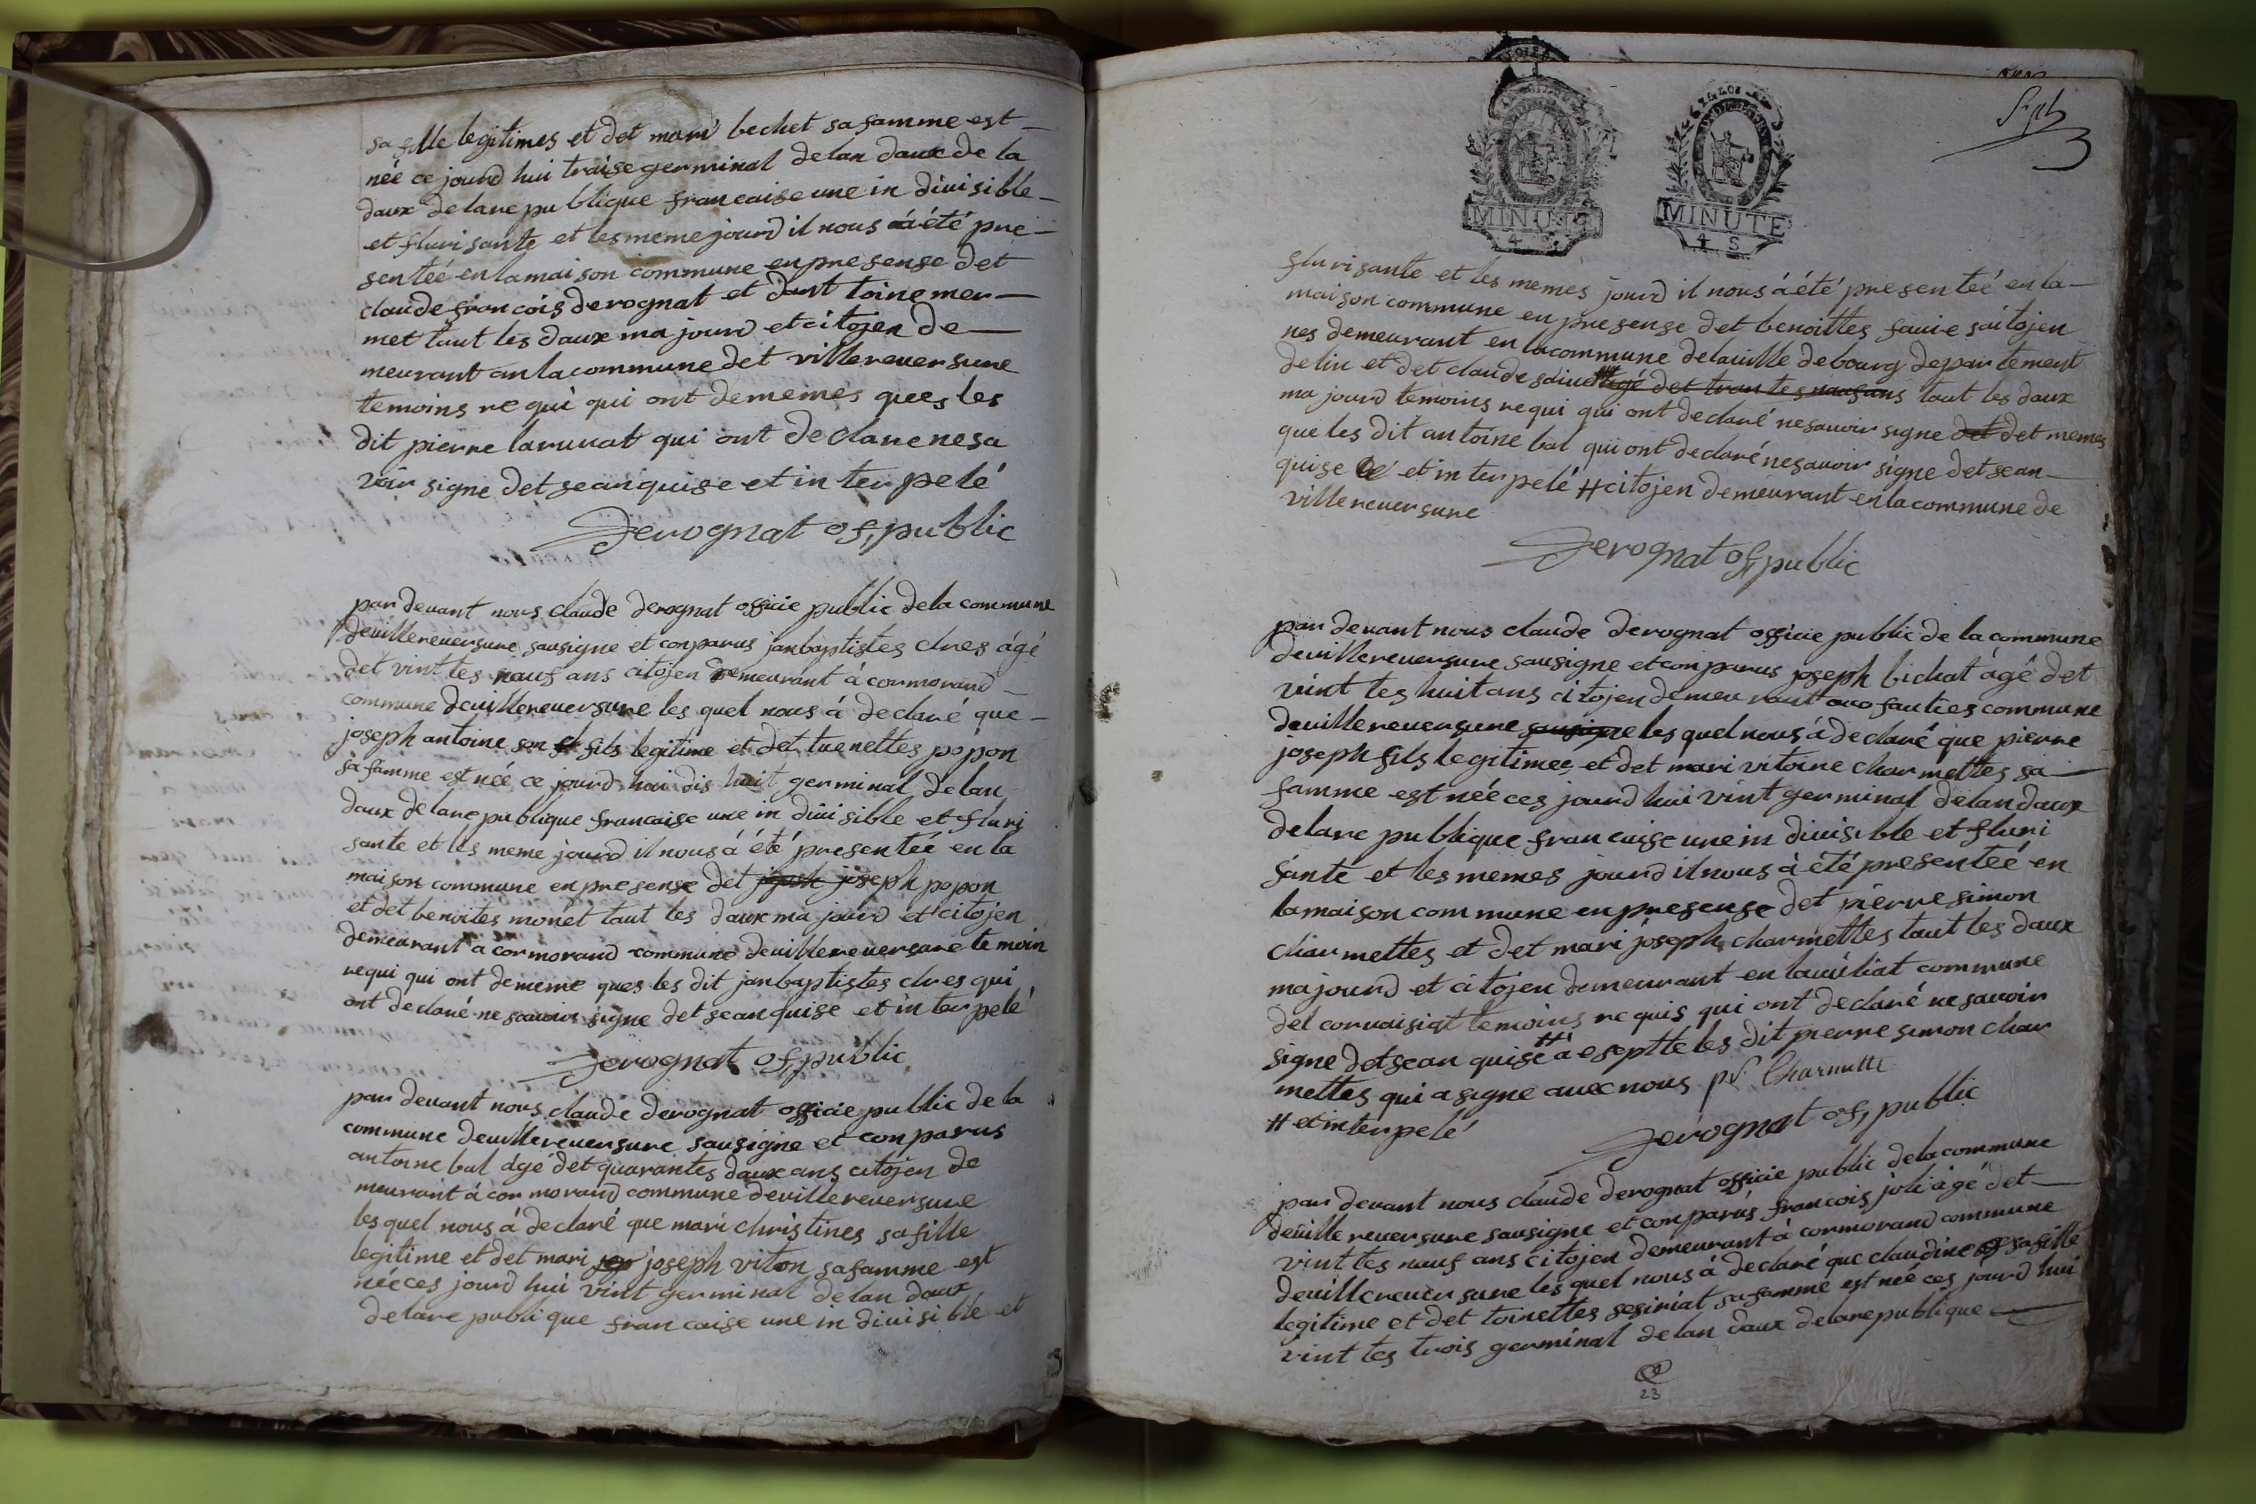 sa fille legitimes et det mari bechet sa famme est
née ce jourd hui traise germinal de lan daux de la
daux de lare publique francaise une in diuisible
et flurisante et les meme jourd il nous á été pre
sentéé en la maison commune en presense det
claude francois derognat et dant toine mer
met taut les daux ma jourd et citojen de
meurant an la commune det villereuersure
temoins re qui qui ont dememes ques les
dit pierre larunat qui ont declare nesa
voir signe det sean quise et in terpelé
Derognat of, public
par deuant nous claude derognat officie public dela commune
deuillereuersure sausigne et conparus janbaptistes clres ágé
det vint tes nauf ans citojen demeurant á cormorand
commune deuillereuersure les quel nous á declaré que
joseph antoine son fils legitime et det tuenettes popon
sa famme est néé ce jourd hui dis huit germinal de lan
daux de lare publique francaise une in diuisible et fluri
sante et les meme jourd il nous á été presentéé en la
maison commune en presense det joseph popon
et det benoites monet taut les daux ma jourd et citojen
demeurant a cormorand commune deuillereuersure temoin
re qui qui ont dememe ques les dit janbaptistes clres qui
ont declaré ne sauoir signe det sean quise et in terpelé
Derognat of, public
par deuant nous claude derognat officie public de la
commune deuillereuersure sausigne et conparus
antoine bal ágé det quarantes daux ans citojen de
meurant á cormorand commune deuillereuersure
les quel nous á declaré que mari christines sa fille
legitime et det mari joseph viton sa famme est
néé ces jourd hui vint germinal de lan daux
de lare publique francaise une in diuisible et
MINUTE
4 S
MINUTE
4 S
flurisante et les memes jourd il nous á été presentéé en la
maison commune en presense det benoittes faure saitojen
nes demeurant en la commune de lauille de bourg departement
de lin et det claude agé det trantes naufans taut les daux
ma jourd temoins requi qui ont declaré nesauoir signe det det memes
que les dit antoine bal qui ont declaré nesauoir signe det sean
quise et in terpelé # citojen demeurant en la commune de
villereuersure
Derognat of, public
par deuant nous claude derognat officie public de la commune
deuillereuersure sausigne et conparus joseph bichat ágé det
vint tes huit ans citojen demeurant auo fauties commune
deuillereuersure sausigne les quel nous á declaré que pierre
joseph fils legitimee et det mari vitoire charmettes sa
famme est néé ces jourd hui vint germinal de lan daux
de lare publique francaisse une in diuisible et fluri
sante et les memes jourd il nous á été presentéé en
la maison commune en presense det pierre simon
charmettes et det mari joseph charmettes taut les daux
ma jourd et citojen demeurant en lauéliat commune
del coruaisiat temoins re quis qui ont declaré ne sauoir
signe det sean quise # á eseptte les dit pierre simon char
mettes qui a signe auec nous ps Charmette
# et in terpelé
Derognat of, public
par deuant nous claude derognat officie public dela commune
deuillereuersure sausigne et conparus francois joli ágé det
vint tes nauf ans citojen demeurant á cormorand commune
deuillereuersure les quel nous á declaré que claudine sa fille
legitime et det toinettes sesiriat sa famme est néé ces jourd hui
vint tes trois germinal de lan daux de lare publique
23